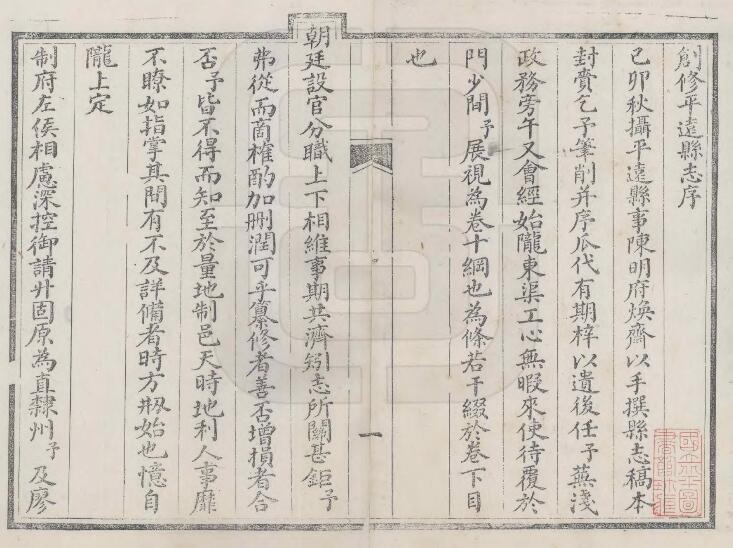 創修平遠縣志序
己卯秋攝平遠縣事陳明府煥齋以手撰縣志稿本
封賫乞予筆削并序瓜代有期梓以遺後任予蕪淺
政務旁午又會經始隴東渠工心無暇來使待覆於
門少間予展視為卷十綱也為條若干綴於卷下目
也
朝廷設官分職上下相維事期共濟矧志所關甚鉅予
弗從而商榷酌加刪潤可乎纂修者善否增損者合
否予皆不得而知至於量地制邑天時地利人事靡
不瞭如指掌其間有不及詳備者時方剏始也憶自
隴上定
制府左侯相慮深控御請升固原為直隸州予及廖
一